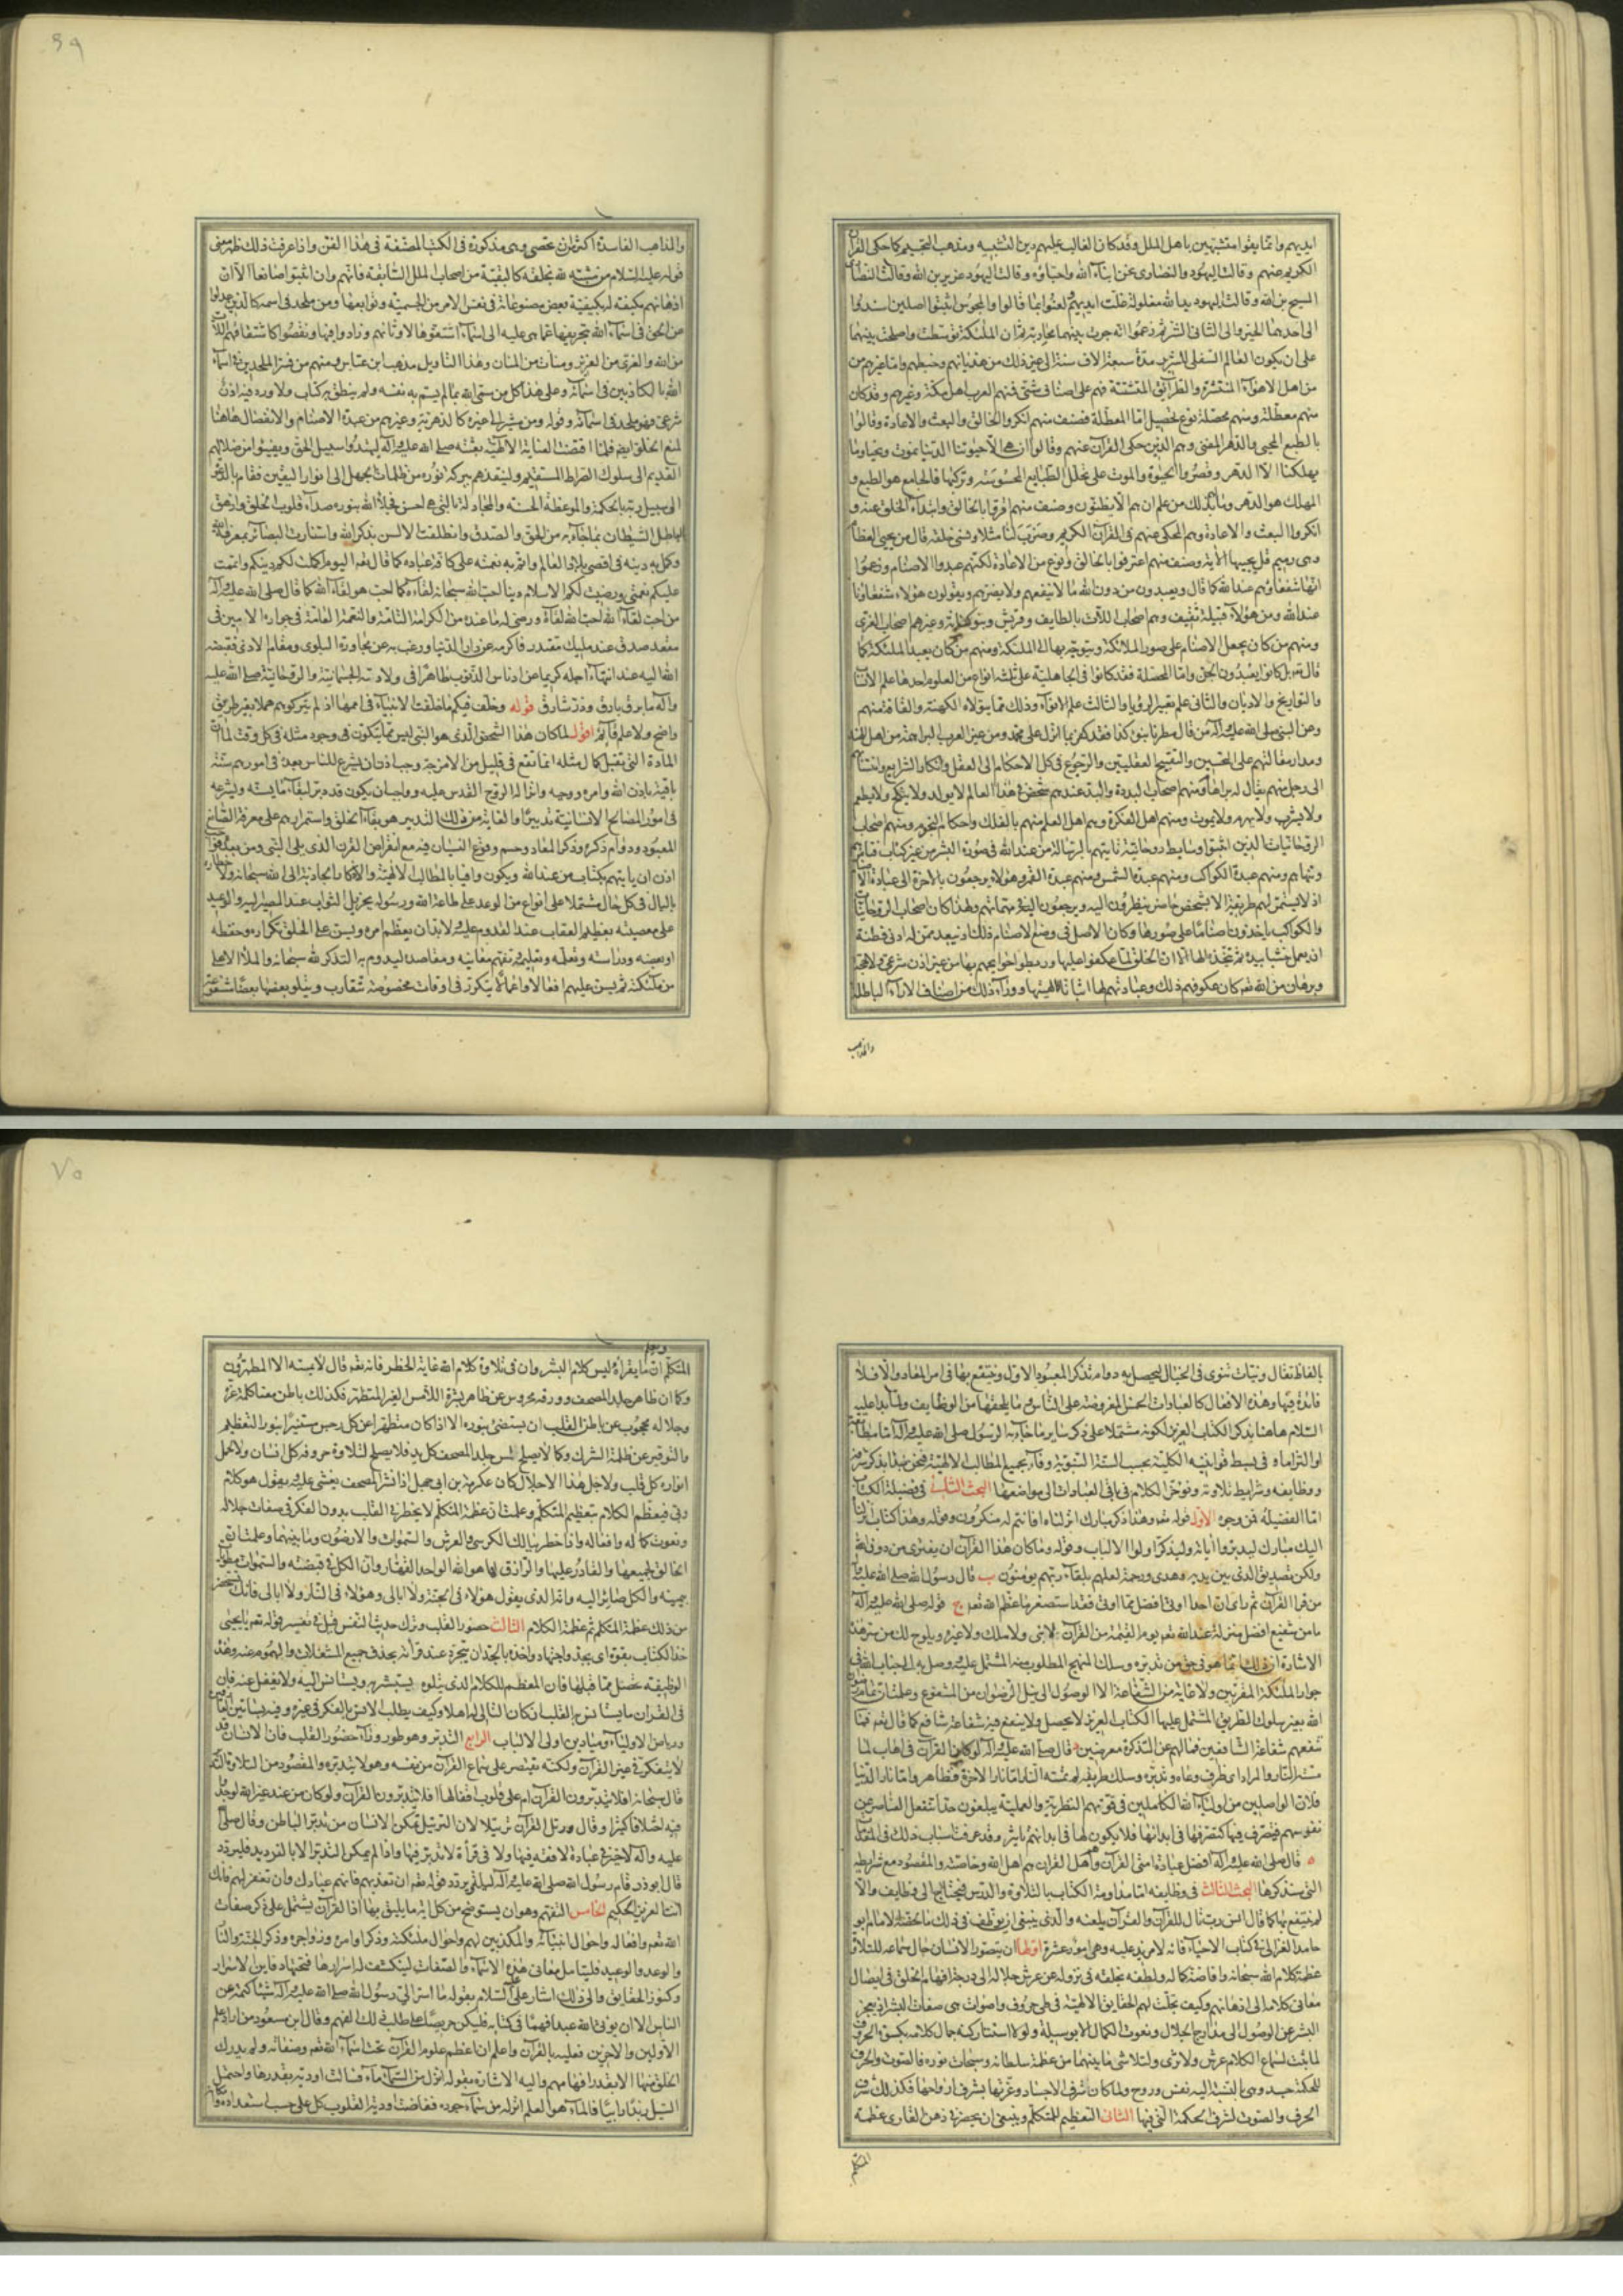 ايديهم وانما بقوا متشبهين باهل الملل وقد كان الغالب عليهم دين التشبيه ومذهب التجسيم كما حكى القرآن
الكريم عنهم وقالت اليهود والنصارى نحن ابناء الله واحباؤه وقالت اليهود عزير بن الله وقالت النصارى
المسيح بن الله وقالت اليهود يد الله مغلولة غلت ايديهم ولعنوا بما قالوا والمجوس اثبتوا اصلين اسندوا
الى احدهما الخير والى الثانى الشر ثم زعموا انه جرت بينهما محاربة ثم ان الملئكة توسطت واصلحت بينهما
على ان يكون العالم السفلى للشرير مدة سبعة الاف سنة الى غير ذلك من هذيانهم وخبطهم واما غيرهم من
من اهل الاهواء المنتشرة والطرائق المتشتتة فهم على اصناف شتى فمنهم العرب اهل مكة وغيرهم وقد كان
منهم معطلة ومنهم محصلة نوع تحصيل اما المعطلة فصنف منهم انكروا الخالق والبعث والاعادة وقالوا
بالطبع المحيى والدهر المفنى وهم الذين حكى القرآن عنهم وقالوا ان هى الا حيوتنا الدنيا نموت ونحيا وما
يهلكنا الا الدهر وقصروا الحيوة والموت على تحلل الطبايع المحسوسة وتركبها فالجامع هو الطبع و
المهلك هو الدهر وما لهم بذلك من علم ان هم الا يظنون وصنف منهم اقروا بالخالق وابتداء الخلق عنه و
انكروا البعث والاعادة وهم المحكى عنهم فى القرآن الكريم وضرب لنا مثلا ونسى خلقه قال من يحيى العظام
وهى رميم قل يحييها الآية وصنف منهم اعترفوا بالخالق ونوع من الاعادة لكنهم عبدوا الاصنام وزعموا
انها شفعاؤهم عند الله كما قال ويعبدون من دون الله ما لا ينفعهم ولا يضرهم ويقولون هؤلاء شفعاؤنا
عند الله ومن هؤلاء قبيلة ثقيف وهم اصحاب اللات بالطايف وقريش وبنو كنانة وغيرهم اصحاب العزى
ومنهم من كان يجعل الاصنام على صور الملائكة ويتوجه بها الى الملئكة ومنهم من كان يعبد الملئكة كما
قال تعالى بل كانوا يعبدون الجن واما المحصلة فقد كانوا فى الجاهلية على ثلثة انواع من العلوم احدها علم الانساب
والتواريخ والاديان والثانى علم تعبير الرؤيا والثالث علم الانواء وذلك مما يتولاه الكهنة والقافة منهم
وعن النبى صلى الله عليه وآله من قال مطرنا بنوء كذا فقد كفر بما انزل على محمد ومن غير العرب البراهمة من اهل الهند
ومدار مقالتهم على التحسين والتقبيح العقليين والرجوع فى كل الاحكام الى العقل وانكار الشرايع وانتسابهم
الى رجل منهم يقال له براهام ومنهم اصحاب البددة والبد عندهم شخص فى هذا العالم لا يولد ولا ينكح ولا يطعم
ولا يشرب ولا يهرم ولا يموت ومنهم اهل الفكرة وهم اهل العلم منهم بالفلك واحكام النجوم ومنهم اصحاب
الروحانيات الذين اثبتوا وسايط روحانية تاتيهم بالرسالة من عند الله فى صورة البشر من غير كتاب فتامرهم
وتنهاهم ومنهم عبدة الكواكب ومنهم عبدة الشمس ومنهم عبدة القمر وهؤلاء يرجعون بالاخرة الى عبادة الاصنام
اذ لا يستمر لهم طريقة الا بشخص حاضر ينظرون اليه ويرجعون اليه فى مهماتهم ولهذا كان اصحاب الروحانيات
والكواكب ياخذون اصناما على صورها فكان الاصل فى وضع الاصنام ذلك اذ يبعد ممن له ادنى فطنة
ان يعمل خشبا بيده ثم يتخذه الها الا ان الخلق لما عكفوا عليها وربطوا حوائجهم بها من غير اذن شرعى ولا حجة
وبرهان من الله تعالى كان عكوفهم ذلك وعبادتهم لها اثباتا لالهيتها ووراء ذلك من اصناف الاراء الباطلة
والمذاهب
والمذاهب الفاسدة اكثر من ان تحصى وهى مذكورة فى الكتب المصنفة فى هذا الفن واذا عرفت ذلك ظهر معنى
قوله عليه السلام من مشبه لله بخلقه كالبقية من اصحاب الملل السابقة فانهم وان اثبتوا صانعا الا ان
اذهانهم مكيفة له بكيفية بعض مصنوعاته فى نفس الامر من الجسمية وتوابعها ومن ملحد فى اسمه كالذين عدلوا
عن الحق فى اسماء الله بتحريفها عما هى عليه الى اسماء اشتقوها لاوثانهم وزادوا فيها ونقصوا كاشتقاقهم اللات
من الله والعزى من العزيز ومناة من المنان وهذا التاويل مذهب ابن عباس ومنهم من فسر الملحدين فى اسماء
الله بالكاذبين فى اسمائه وعلى هذا كل من سمى الله بما لم يسم به نفسه ولم ينطق به كتاب ولا ورد فيه اذن
شرعى فهو ملحد فى اسمائه وقوله ومن مشير الى غيره كالدهرية وغيرهم من عبدة الاصنام والانفصال هاهنا
القديم الى سلوك الصراط المستقيم ولينقذهم ببركة نوره من ظلمات الجهل الى انوار اليقين فقام بالدعوة
الى سبيل ربه بالحكمة والموعظة الحسنة والمجادلة بالتى هى احسن فجلا الله بنوره صداء قلوب الخلق وازهق
باطل الشيطان بما جاء به من الحق والصدق وانطلقت الالسن بذكر الله واستنارت البصائر بمعرفته
وكمل به دينه فى اقصى بلاد العالم واتم به نعمته على كافة عباده كما قال تعالى اليوم اكملت لكم دينكم واتممت
عليكم نعمتى ورضيت لكم الاسلام دينا احب الله سبحانه لقاءه كما احب هو لقاء الله كما قال صلى الله عليه وآله
من احب لقاء الله احب الله لقاءه ورضى له ما عنده من الكرامة التامة والنعمة العامة فى جواره الامين فى
مقعد صدق عند مليك مقتدر فاكرمه عن دار الدنيا ورغب به عن مجاورة البلوى ومقام الاذى فقبضه
الله اليه عند انتهاء اجله كريما عن ادناس الذنوب طاهرا فى ولادته الجسمانية والروحانية صلى الله عليه
وآله ما برق بارق وذر شارق قوله وخلف فيكم ما خلفت الانبياء فى اممها اذ لم يتركوهم هملا بغير طريق
واضح ولا علم قائم اقول لما كان هذا الشخص الذى هو النبى ليس مما يتكون فى وجود مثله فى كل وقت لما ان
المادة التى تقبل كمال مثله انما تقع فى قليل من الامزجة وجب اذن ان يشرع للناس بعده فى امورهم سنة
باقية باذن الله وامره ووحيه وانزاله الروح القدس عليه وواجب ان يكون قد دبر لبقاء ما يسنه ويشرعه
فى امور المصالح الانسانية تدبيرا والغاية من ذلك التدبير هو بقاء الخلق واستمرارهم على معرفة الصانع
المعبود ودوام ذكره وذكر المعاد وحسم وقوع النسيان فيه مع انقراض القرن الذى يلى النبى ومن بعده فواجب
اذن ان ياتيهم بكتاب من عند الله ويكون وافيا بالمطالب الالهية والاذكار الجاذبة الى الله سبحانه
بالبال فى كل حال مشتملا على انواع من الوعد على طاعة الله ورسوله بجزيل الثواب عند المصير اليه والوعيد
على معصيته بعظيم العقاب عند القدوم عليه ولا بد ان يعظم امره ويسن على الخلق تكراره وحفظه
وبحثه ودراسته وتعلمه وتعليمه وتفهم معانيه ومقاصده ليدوم به التذكر لله سبحانه والملأ الاعلى
من ملئكته ثم يسن عليهم افعالا واعمالا تتكرر فى اوقات مخصوصة تتقارب ويتلو بعضها بعضا مشفوعة
بالفاظ تقال ونيات تنوى فى الخيال ليحصل به دوام تذكر المعبود الاول وينتفع بها فى امر المعاد والا فلا
فائدة فيها وهذه الافعال كالعبادات الخمس المفروضة على الناس وما يلحقها من الوظايف ولما بدا عليه
السلام هاهنا بذكر الكتاب العزيز لكونه مشتملا على ذكر ساير ما جاء به الرسول صلى الله عليه وآله اما مطابقة
او التزاما وفى بسط قوانينه الكلية بحسب السنة النبوية وفاء بجميع المطالب الالهية فنحن نبدا بذكر شرفه
ووظايفه وشرايط تلاوته ونؤخر الكلام فى باقى العبادات الى مواضعها البحث الثانى فى فضيلة الكتاب
اما الفضيلة فمن وجوه الاول قوله تعالى وهذا ذكر مبارك انزلناه افانتم له منكرون وقوله وهذا كتاب انزلناه
اليك مبارك ليدبروا آياته وليتذكر اولوا الالباب وقوله وما كان هذا القرآن ان يفترى من دون الله
ولكن تصديق الذى بين يديه وهدى ورحمة لعلهم بلقاء ربهم يؤمنون ب قال رسول الله صلى الله عليه وآله
من قرا القرآن ثم راى ان احدا اوتى افضل مما اوتى فقد استصغر ما عظم الله تعالى ج قوله صلى الله عليه وآله
ما من شفيع افضل منزلة عند الله تعالى يوم القيمة من القرآن لا نبى ولا ملك ولا غيره ويلوح لك من سر هذه
الاشارة ان ذلك انما هو فى حق من تدبره وسلك المنهج المطلوب منه المشتمل عليه ووصل به الى جناب الله فى
جوار الملئكة المقربين ولا غاية من الشفاعة الا الوصول الى نيل الرضوان من المشفوع وعلمت ان تمام رضوان
الله بغير سلوك الطريق المشتمل عليها الكتاب العزيز لا يحصل ولا ينفع فيه شفاعة شافع كما قال تعالى فما
تنفعهم شفاعة الشافعين فما لهم عن التذكرة معرضين د قال صلى الله عليه وآله لو كان القرآن فى اهاب لما
مسته النار والمراد اى ظرف وعاه وتدبره وسلك طريقه لم تمسه النار اما نار الاخرة فظاهر واما نار الدنيا
فلان الواصلين من اولياء الله الكاملين فى قوتهم النظرية والعملية يبلغون حدا تنفعل العناصر عن
نفوسهم فتتصرف فيها كتصرفها فى ابدانها فلا يكون لها فى ابدانهم تاثير وقد عرفت اسباب ذلك فى المقدمات
ه قال صلى الله عليه وآله افضل عبادة امتى القرآن واهل القرآن هم اهل الله وخاصته والمقصود مع شرايطه
التى سنذكرها البحث الثالث فى وظايفه اما مداومة الكتاب بالتلاوة والدرس فيحتاج الى وظايف والا
لم ينتفع بها كما قال انس رب تال للقرآن والقرآن يلعنه والذى ينبغى ان يوظف فى ذلك ما لخصه الامام ابو
حامد الغزالى فى كتاب الاحياء فانه لا مزيد عليه وهى امور عشرة اولها ان يتصور الانسان حال سماعه للتلاوة
عظمة كلام الله سبحانه وافاضة كماله ولطفه بخلقه فى نزوله عن عرش جلاله الى درجة افهام الخلق فى ايصال
معانى كلامه الى اذهانهم وكيف تجلت لهم الحقايق الالهية فى طى حروف واصوات هى صفات البشر اذ يعجز
البشر عن الوصول الى مدارج الجلال ونعوت الكمال الا بوسيلة ولولا استتار كنه جمال كلامه بكسوة الحروف
لما ثبت لسماع الكلام عرش ولا ثرى ولتلاشى ما بينهما من عظمة سلطانه وسبحات نوره فالصوت والحرف
للحكمة جسد وهى بالنسبة اليه نفس وروح ولما كان شرف الاجساد وعزتها بشرف ارواحها فكذلك شرف
الحرف والصوت لشرف الحكمة التى فيها الثانى التعظيم للمتكلم وينبغى ان يحضر فى ذهن القارى عظمة
المتكلم
المتكلم ان ما يقرأه ليس كلام البشر وان فى تلاوة كلام الله غاية الخطر فانه تعالى قال لا يمسه الا المطهرون
وكما ان ظاهر جلد المصحف وورقه محروس عن ظاهر بشرة اللامس الغير المتطهر فكذلك باطن معناه
وجلاله محجوب عن باطن القلب ان يستضئ بنوره الا اذا كان متطهرا عن كل رجس مستنيرا بنور التعظيم
والتوقير عن ظلمة الشرك وكما لا يصلح لمس جلد المصحف كل يد فلا يصلح لتلاوة حروفه كل انسان ولا لحمل
انواره كل قلب ولاجل هذا الاجلال كان عكرمة بن ابى جهل اذا نشر المصحف يغشى عليه ويقول هو كلام
ربى فيعظم الكلام بتعظيم المتكلم وعلمت ان عظمة المتكلم لا تخطر فى القلب بدون الفكر فى صفات جلاله
ونعوت كماله وافعاله واذا خطر ببالك الكرسى والعرش والسموات والارضون وما بينهما وعلمت ان
الخالق لجميعها والقادر عليها والرازق لها هو الله الواحد القهار وان الكل فى قبضته والسموات مطويات
بيمينه والكل صائر اليه وانه الذى يقول هؤلاء فى الجنة ولا ابالى وهؤلاء فى النار ولا ابالى فانك تستحضر
من ذلك عظمة المتكلم ثم عظمة الكلام الثالث حضور القلب وترك حديث النفس قيل فى تفسير قوله تعالى يا يحيى
خذ الكتاب بقوة اى بجد واجتهاد واخذه بالجد ان يتجرد عند قرائته بحذف جميع المشغلات والهموم عنه وهذه
الوظيفة تحصل مما قبلها فان المعظم للكلام الذى يتلوه يستبشر به ويستانس اليه ولا يغفل عنه فان
فى القرآن ما يستانس به القلب ان كان التالى له اهلا وكيف يطلب الانس بالفكر فى غيره وفيه بساتين العارفين
ورياض الاولياء وميادين اولى الالباب الرابع التدبر وهو طور وراء حضور القلب فان الانسان قد
لا يتفكر فى غير القرآن ولكنه يقتصر على سماع القرآن من نفسه وهو لا يتدبره والمقصود من التلاوة التدبر
قال سبحانه افلا يتدبرون القرآن ام على قلوب اقفالها افلا يتدبرون القرآن ولو كان من عند غير الله لوجدوا
فيه اختلافا كثيرا وقال ورتل القرآن ترتيلا لان الترتيل يمكن الانسان من تدبر الباطن وقال صلى الله
عليه وآله لا خير فى عبادة لا فقه فيها ولا فى قرأة لا تدبر فيها واذا لم يمكن التدبر الا بالترديد فليردد
قال ابو ذر قام رسول الله صلى الله عليه وآله ليلة يردد قوله تعالى ان تعذبهم فانهم عبادك وان تغفر لهم فانك
انت العزيز الحكيم الخامس التفهم وهو ان يستوضح من كل اية ما يليق بها اذ القرآن يشتمل على ذكر صفات
الله تعالى وافعاله واحوال انبيائه والمكذبين لهم واحوال ملئكته وذكر اوامره وزواجره وذكر الجنة والنار
والوعد والوعيد فليتامل معانى هذه الاسماء والصفات لينكشف له اسرارها فتحتها دفاين الاسرار
وكنوز الحقايق والى ذلك اشار على عليه السلام بقوله ما اسر الى رسول الله صلى الله عليه وآله شيئا كتمه عن
الناس الا ان يؤتى الله عبدا فهما فى كتابه فليكن حريصا على طلب ذلك الفهم وقال ابن مسعود من اراد علم
الاولين والاخرين فعليه بالقرآن واعلم ان اعظم علوم القرآن تحت اسماء الله تعالى وصفاته ولم يدرك
الخلق منها الا بقدر افهامهم واليه الاشارة بقوله انزل من السماء ماء فسالت اودية بقدرها فاحتمل
السيل زبدا رابيا فالماء هو العلم انزله من سماء جوده ففاضت اودية القلوب كل على حسب استعداده